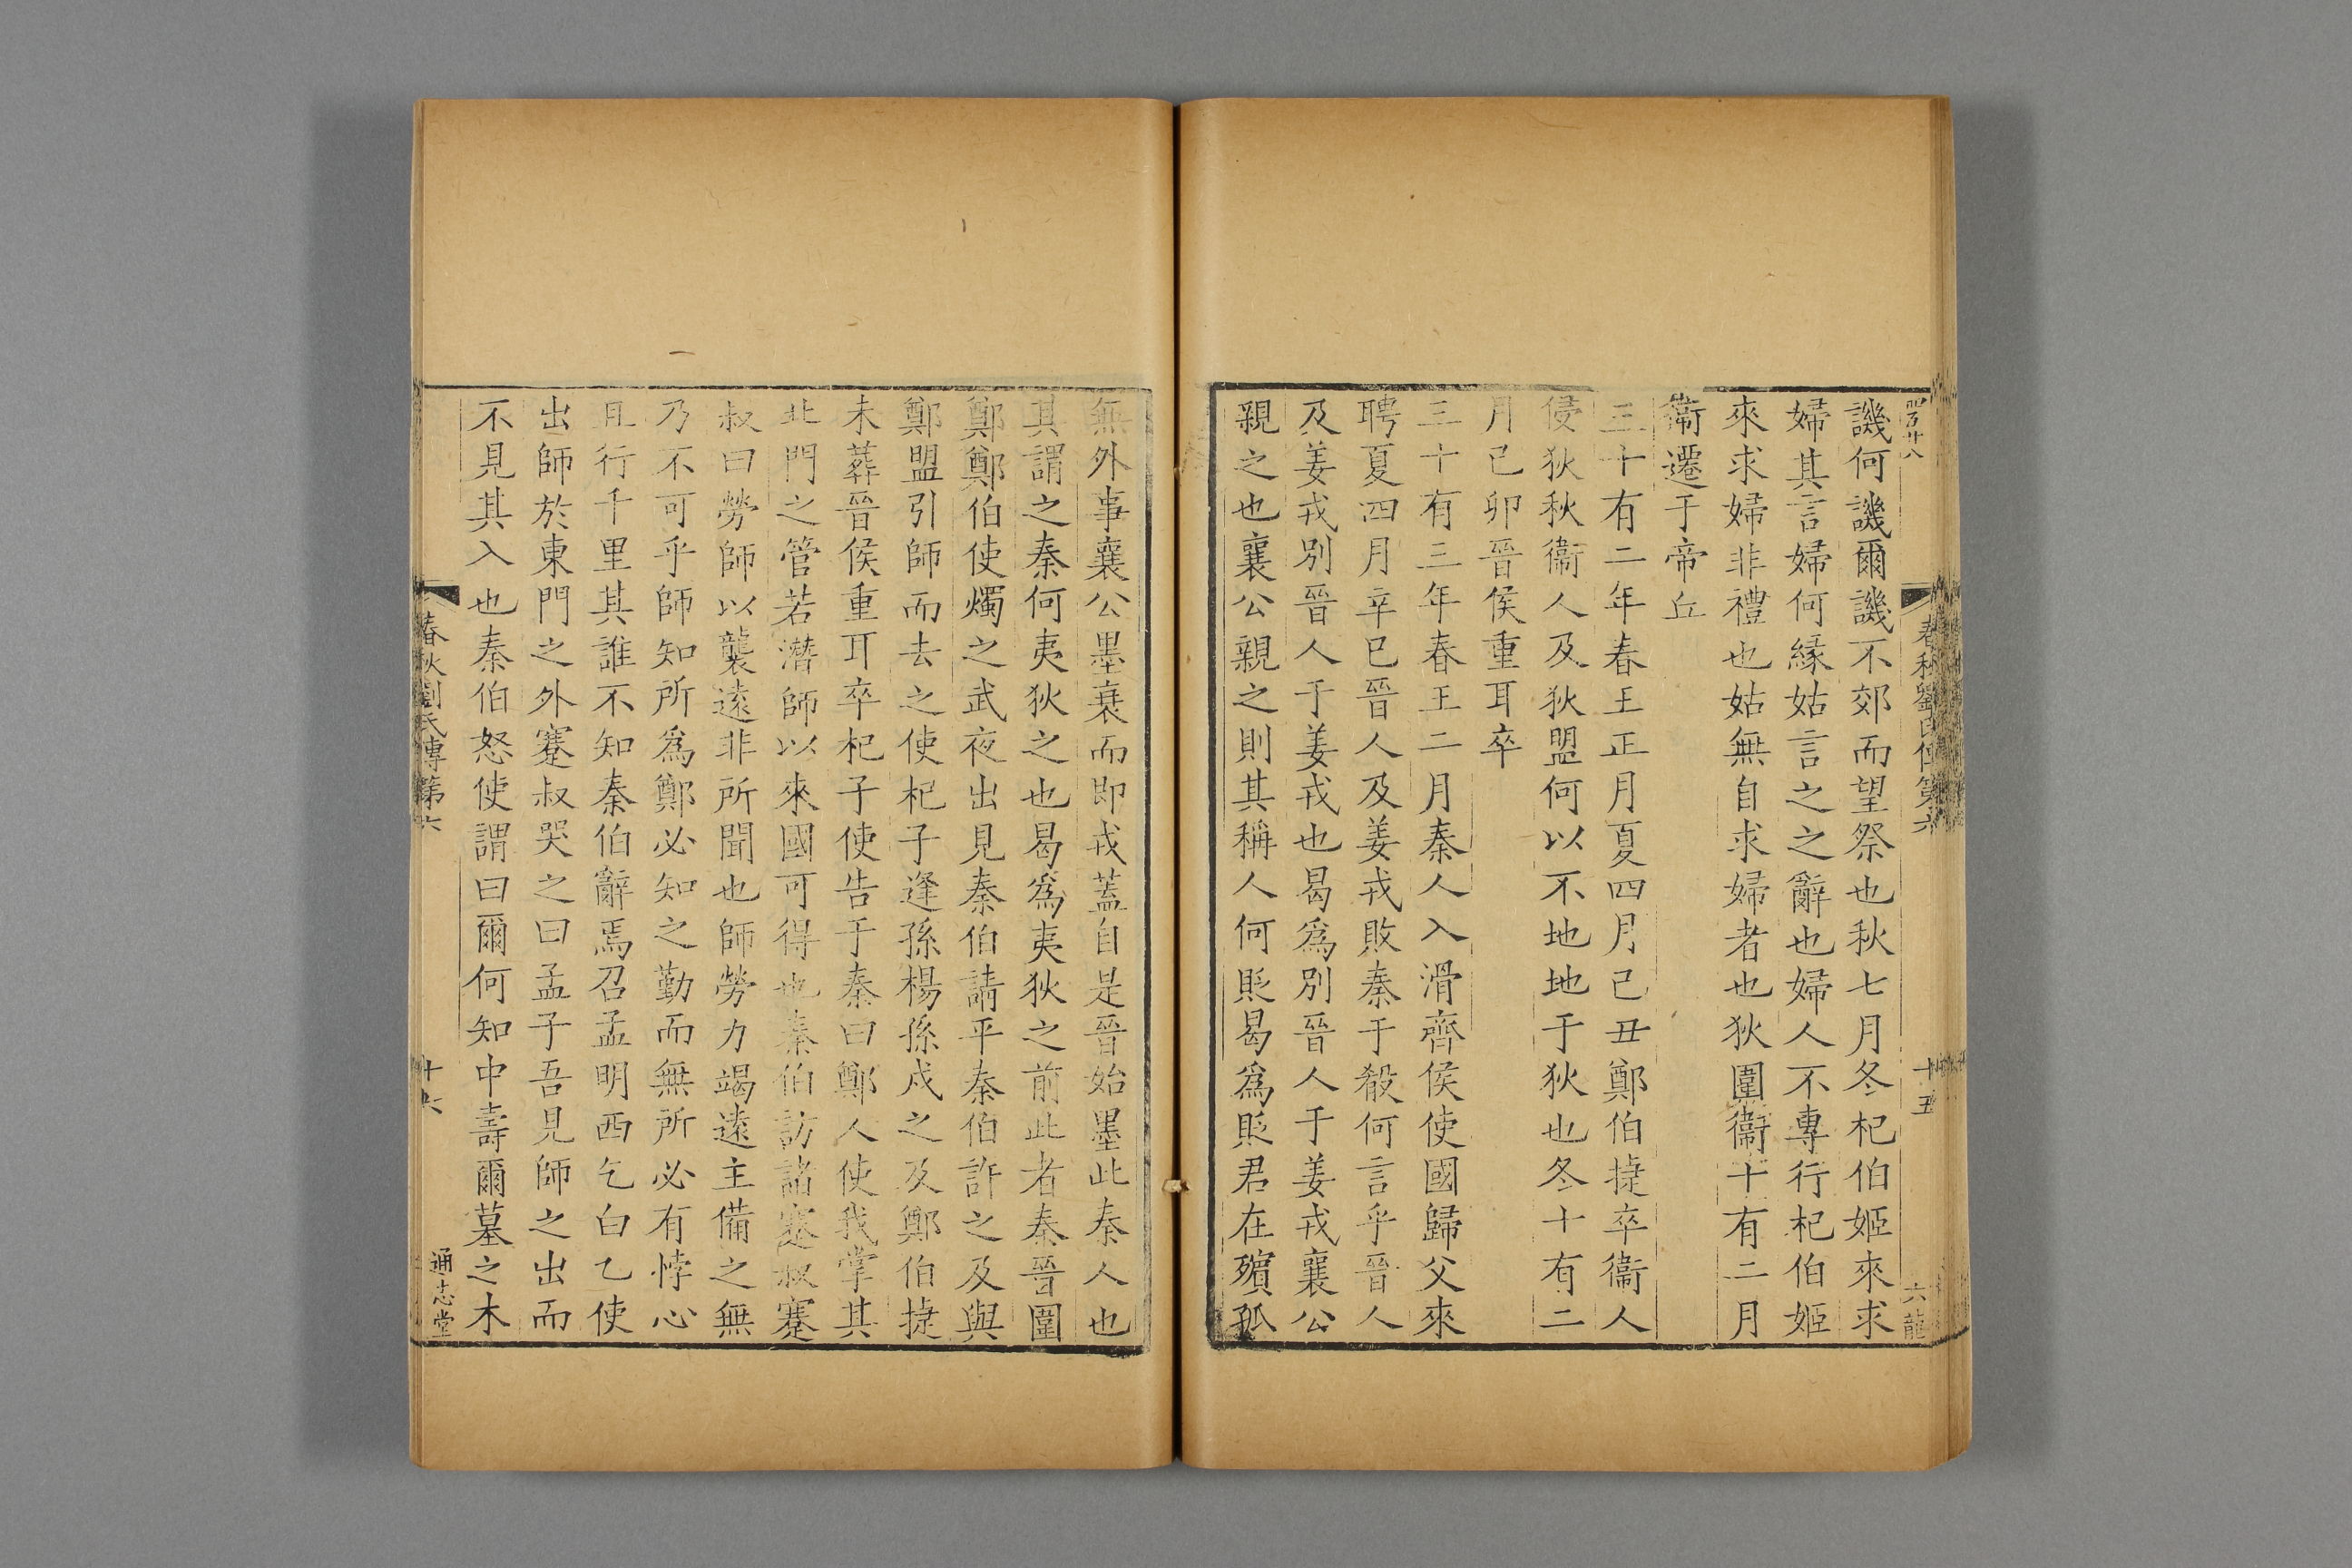 四百廿八
春秋劉氏傳第六
十五
六龍
譏何譏爾譏不郊而望祭也秋七月冬杞伯姬來求
婦其言婦何緣姑言之之辭也婦人不專行杞伯姬
來求婦非禮也姑無自求婦者也狄圍衞十有二月
衞遷于帝丘
三十有二年春王正月夏四月己丑鄭伯捷卒衞人
侵狄秋衞人及狄盟何以不地地于狄也冬十有二
月己卯晉侯重耳卒
三十有三年春王二月秦人入滑齊侯使國歸父來
聘夏四月辛巳晉人及姜戎敗秦于殽何言乎晉人
及姜戎別晉人于姜戎也曷爲別晉人于姜戎襄公
親之也襄公親之則其稱人何貶曷爲貶君在殯孤
無外事襄公墨衰而即戎蓋自是晉始墨此秦人也
其謂之秦何夷狄之也曷爲夷狄之前此者秦晉圍
鄭鄭伯使燭之武夜出見秦伯請平秦伯許之及與
鄭盟引師而去之使杞子逢孫楊孫戍之及鄭伯捷
未葬晉侯重耳卒杞子使告于秦曰鄭人使我掌其
北門之管若潛師以來國可得也秦伯訪諸蹇叔蹇
叔曰勞師以襲遠非所聞也師勞力竭遠主備之無
乃不可乎師知所爲鄭必知之勤而無所必有悖心
且行千里其誰不知秦伯辭焉召孟明西乞白乙使
出師於東門之外蹇叔哭之曰孟子吾見師之出而
不見其入也秦伯怒使謂曰爾何知中壽爾墓之木
春秋劉氏傳第六
十六
通志堂